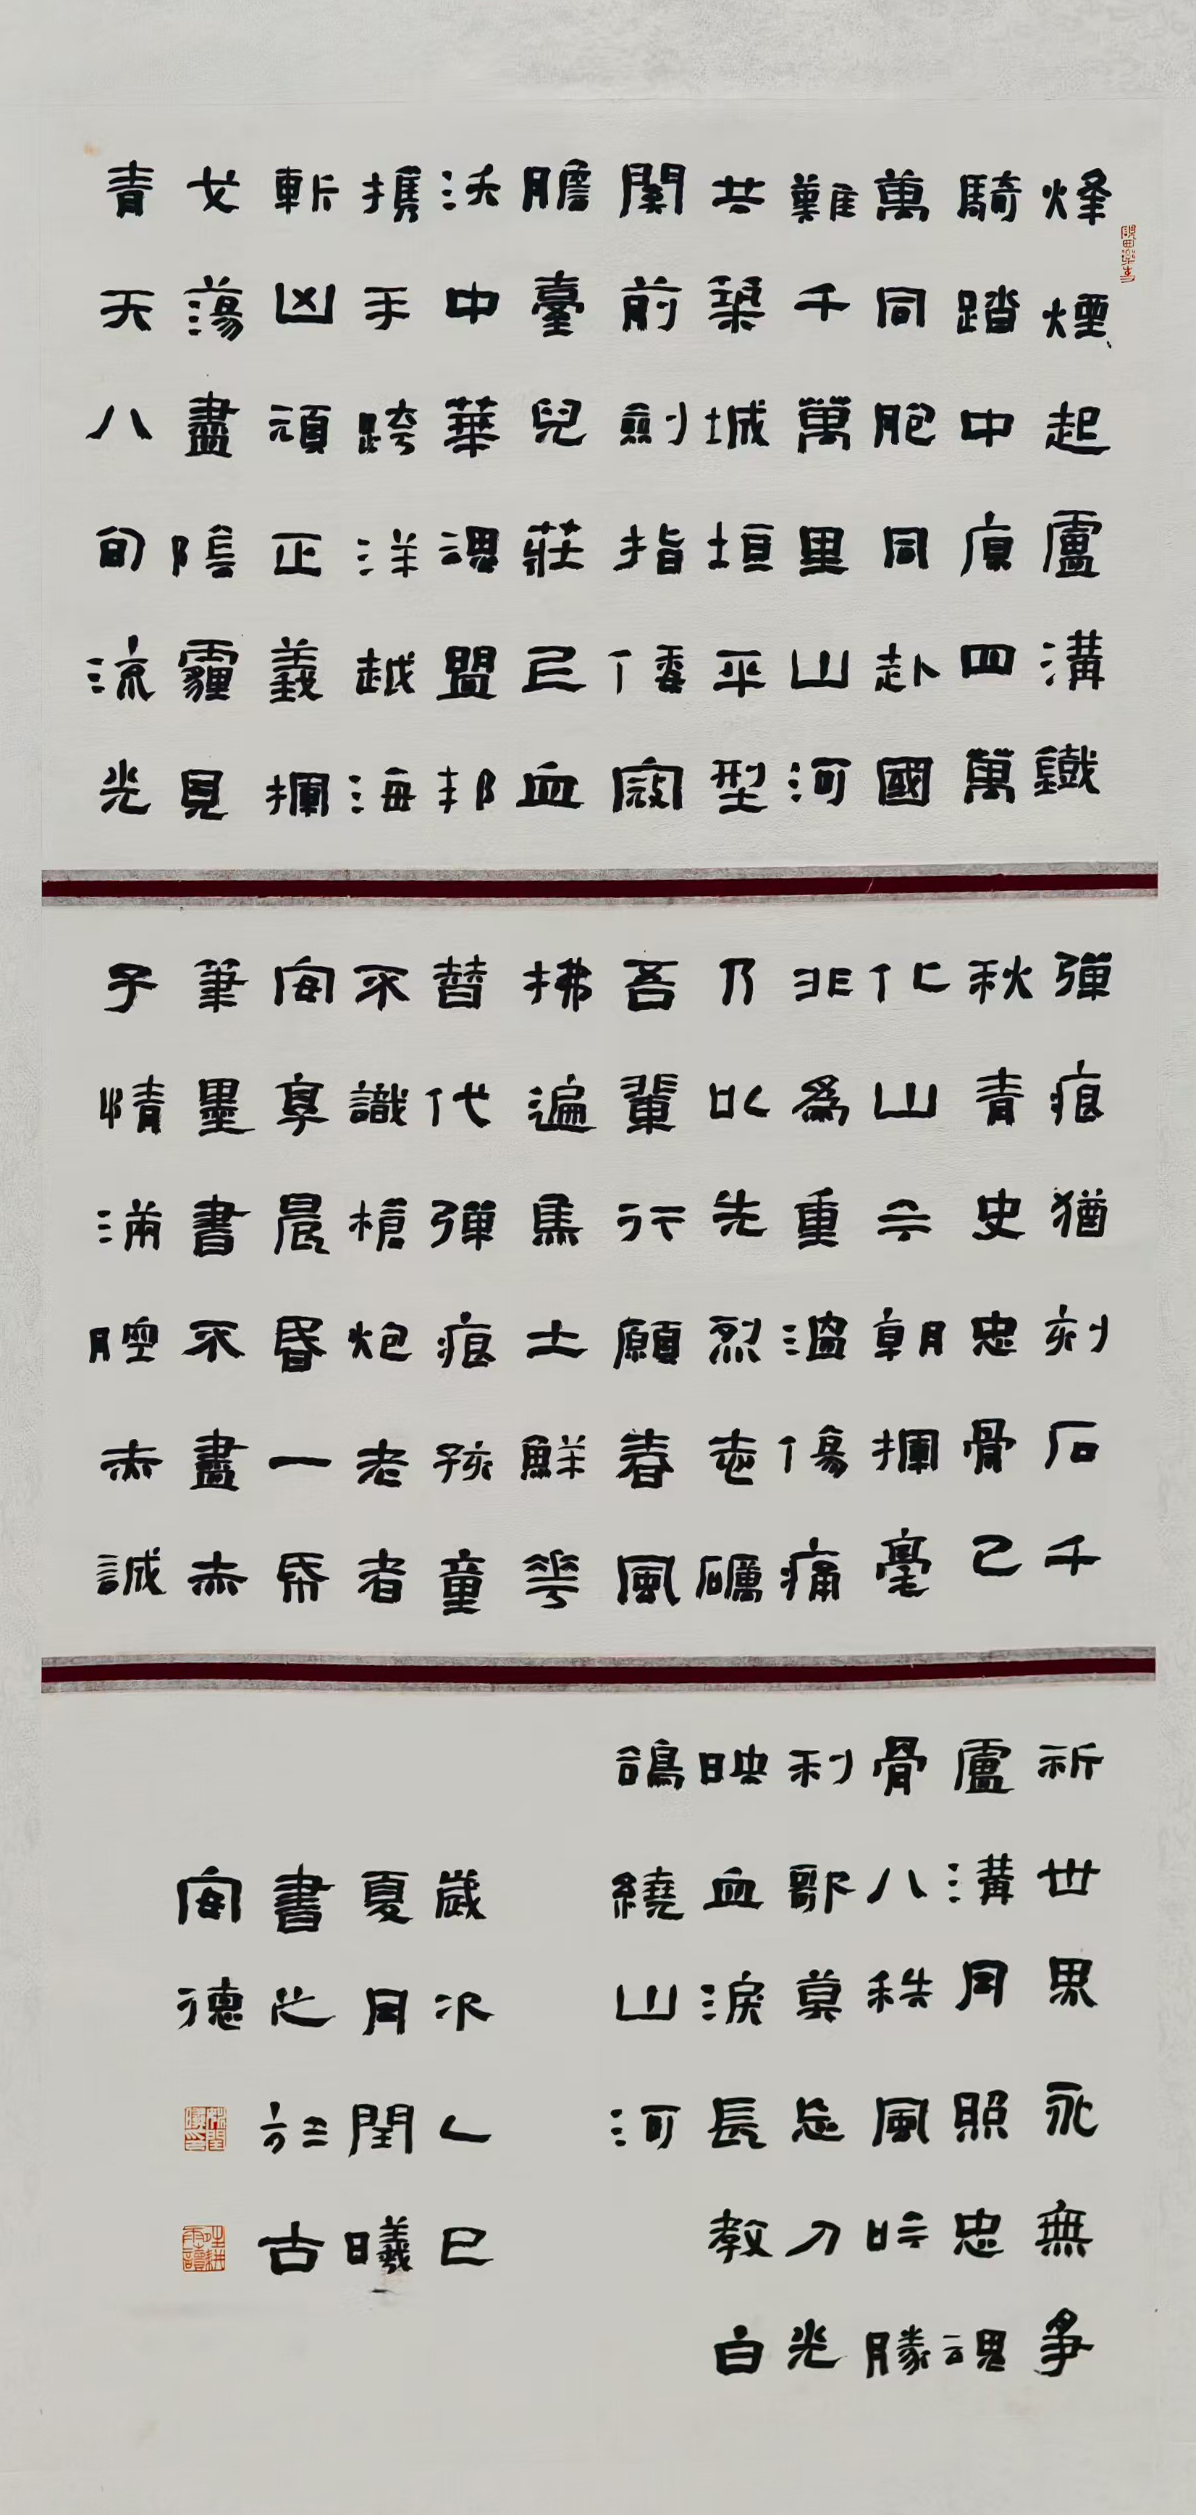 烽煙起盧溝鐵
騎踏中原四萬
萬同胞同赴國
難千萬里山河
共築城垣平型
關前劍指倭寇
膽臺兒莊已血
沃中華魂盟邦
攜手跨洋越海
斬凶頑正義擱
戈蕩盡陰霾見
青天八旬流光
彈痕猶刻石千
秋青史忠骨已
化山今朝擱毫
非為重溫傷痛
乃以先烈志礪
吾輩行願春風
拂遍焦土鮮花
替代彈痕孩童
不識槍炮老者
安享晨昏一帋
筆墨書不盡赤
子情滿腔赤誠
祈世界永無爭
盧溝月照忠魂
骨八秩風吟勝
利歌莫忘刀光
映血淚長教白
鴿繞山河
歲次乙巳
夏月閏曦
書之於古
安德